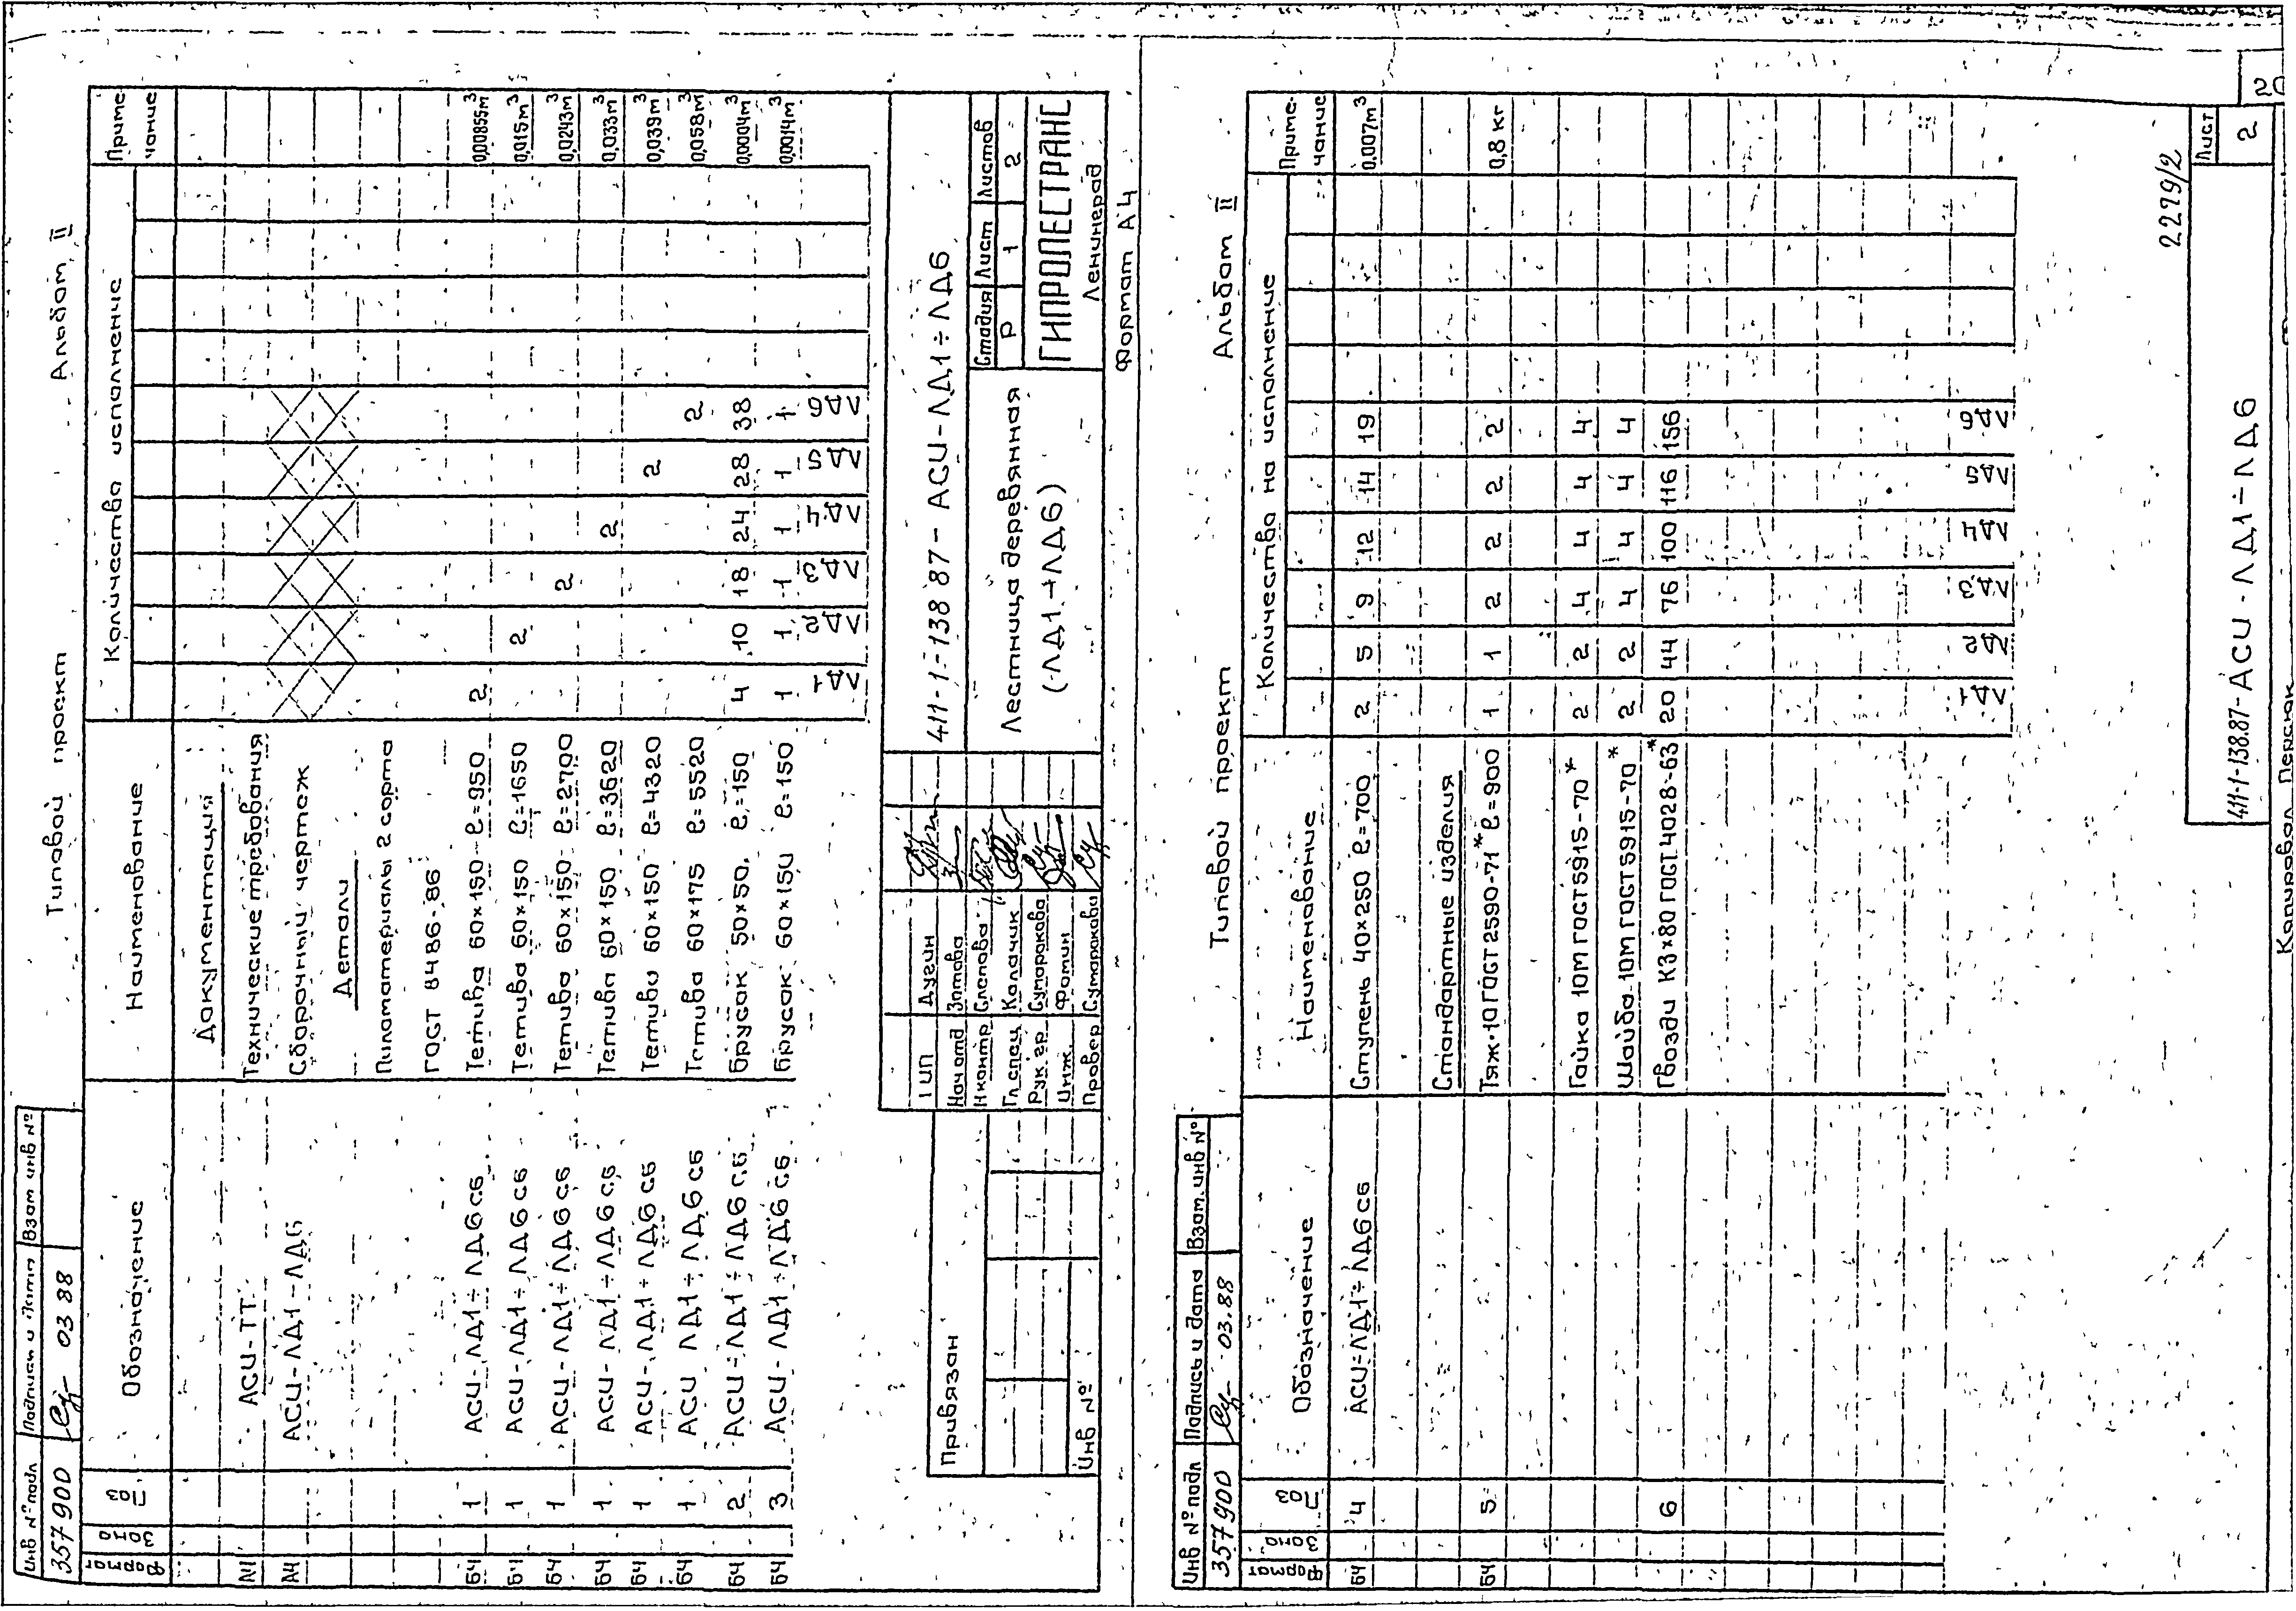 Типовой проект Альбом II
Формат Зона Поз Обозначение Наименование Количество исполнение Приме-чание
Документация
А4 АСИ-ТТ Технические требования
А4 АСИ-ЛД1-ЛД6 Сборочный чертеж
Детали
Пиломатериалы 2 сорта
ГОСТ 8486-86
БЧ 1 АСИ-ЛД1÷ЛД6 СБ Тетива 60×150 ℓ=950 2 0,00855м³
БЧ 1 АСИ-ЛД1÷ЛД6 СБ Тетива 60×150 ℓ=1650 2 0,015м³
БЧ 1 АСИ-ЛД1÷ЛД6 СБ Тетива 60×150 ℓ=2700 2 0,0243м³
БЧ 1 АСИ-ЛД1÷ЛД6 СБ Тетива 60×150 ℓ=3620 2 0,033м³
БЧ 1 АСИ-ЛД1÷ЛД6 СБ Тетива 60×150 ℓ=4320 2 0,039м³
БЧ 1 АСИ ЛД1÷ЛД6 СБ Тетива 60×175 ℓ=5520 2 0,058м³
БЧ 2 АСИ-ЛД1÷ЛД6 СБ Брусок 50×50 ℓ=150 4 10 18 24 28 38 0,0004м³
БЧ 3 АСИ-ЛД1÷ЛД6 СБ Брусок 60×150 ℓ=150 1 1 1 1 1 1 0,0014м³
ЛД1 ЛД2 ЛД3 ЛД4 ЛД5 ЛД6
Инв № подл Подпись и дата Взам инв №
357900 03 88
Привязан
Инв №
ГИП Дугин
Нач отд Зотова
Н контр Слепова
Гл спец Калачик
Рук гр Сумарокова
Инж. Фомин
Провер Сумарокова
411-1-138 87-АСИ-ЛД1÷ЛД6
Лестница деревянная
(ЛД1÷ЛД6)
Стадия Лист Листов
Р 1 2
ГИПРОЛЕСТРАНС
Ленинград
Формат А4
Типовой проект Альбом II
Формат Зона Поз Обозначение Наименование Количество на исполнение Приме-чание
БЧ 4 АСИ-ЛД1÷ЛД6 СБ Ступень 40×250 ℓ=700 2 5 9 12 14 19 0.007м³
Стандартные изделия
БЧ 5 Тяж 10 ГОСТ 2590-71* ℓ=900 1 1 2 2 2 2 0,8 кг
Гайка 10М ГОСТ 5915-70* 2 2 4 4 4 4
Шайба 10М ГОСТ 5915-70* 2 2 4 4 4 4
6 Гвозди К3×80 ГОСТ 4028-63* 20 44 76 100 116 156
ЛД1 ЛД2 ЛД3 ЛД4 ЛД5 ЛД6
Инв № подл Подпись и дата Взам. инв №
357900 03.88
2279/2
411-1-138.87-АСИ-ЛД1÷ЛД6
Лист
2
20
Копировал